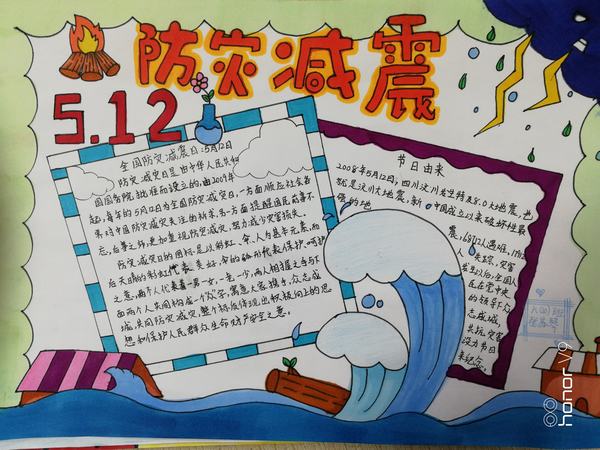 防灾减震
5.12
全国防灾减震日:5月12日
防灾减灾日是由中华人民共和
国国务院批准而设立的,由2009年
起,每年的5月12日为全国防灾减灾日,一方面顺应社会各
界对中国防灾减灾关注的科学,另一方面提醒国民前事不
忘,后事之师,更加重视防灾减灾,努力减少灾害损失。
防灾减灾日的图标是以彩虹、伞、人为基本元素,雨
后天晴的彩虹代表美好,伞的弧形代表保护、呵护
之意,两个人代表一男一女,一老一少,两人相握之手与下
面两个人共同构成一个众字,寓意大家携手,众志成
城,共同防灾减灾。整个标体现出积极向上的思
想和保护人民群众生命财产安全之意。
节日由来
2008年5月12日,四川汶川发生特大8.0大地震,也
就是汶川大地震,新中国成立以来破坏性最
强的地
震,
人失踪,灾害
发生以后,全国人
民在党中央
的领导下众
志成城,
共抗灾害
设为节日
来纪念。
六(四)班
honor V9